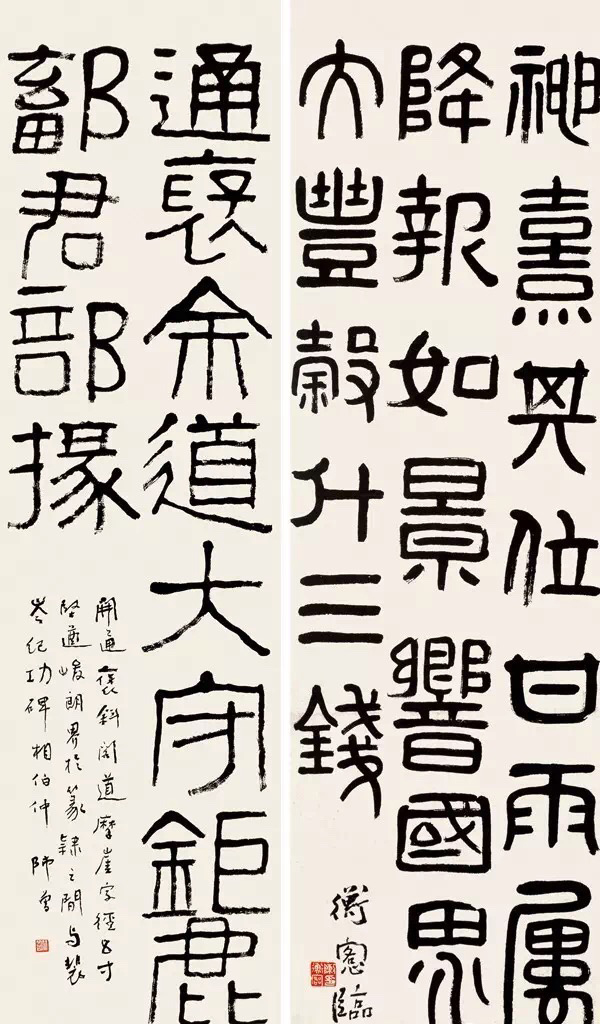 神熹其位甘雨屢
降報如景響國界
大豐穀斗三錢
衡愙臨
通褒余道大守鉅鹿
鄐君部掾
開通褒斜閣道摩崖字徑寸
堅遒峻朗界於篆隸之間與裴
岑紀功碑相伯仲 師曾